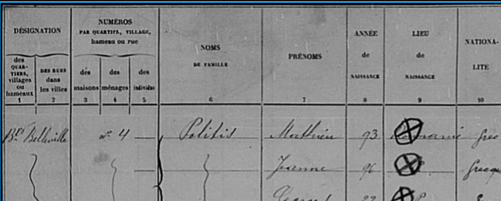 DÉSIGNATION
NUMÉROS
PAR QUARTIER, VILLAGE,
hameau ou rue
NOMS
DE FAMILLE
PRÉNOMS
ANNÉE
de
NAISSANCE
LIEU
de
NAISSANCE
NATIONA-
LITÉ
des
QUAR-
TIERS,
villages
ou
hameaux
DES RUES
dans
les villes
des
maisons
des
ménages
des
individus
1 2 3 4 5 6 7 8 9 10
Bd Belleville n° 4 — Politis Mathieu 93 Grec
96 Grecque